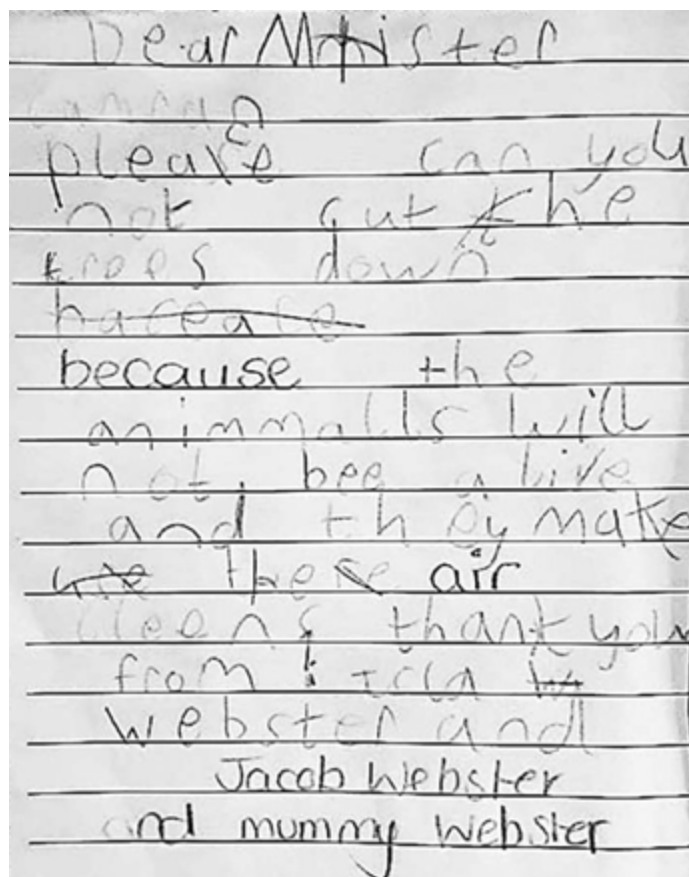 Dear Minister
please can you
not cut the
trees down
because the
animmalls will
not bee alive
and they make
the air
cleen thank you
from Isla
Webster and
Jacob Webster
and mummy Webster